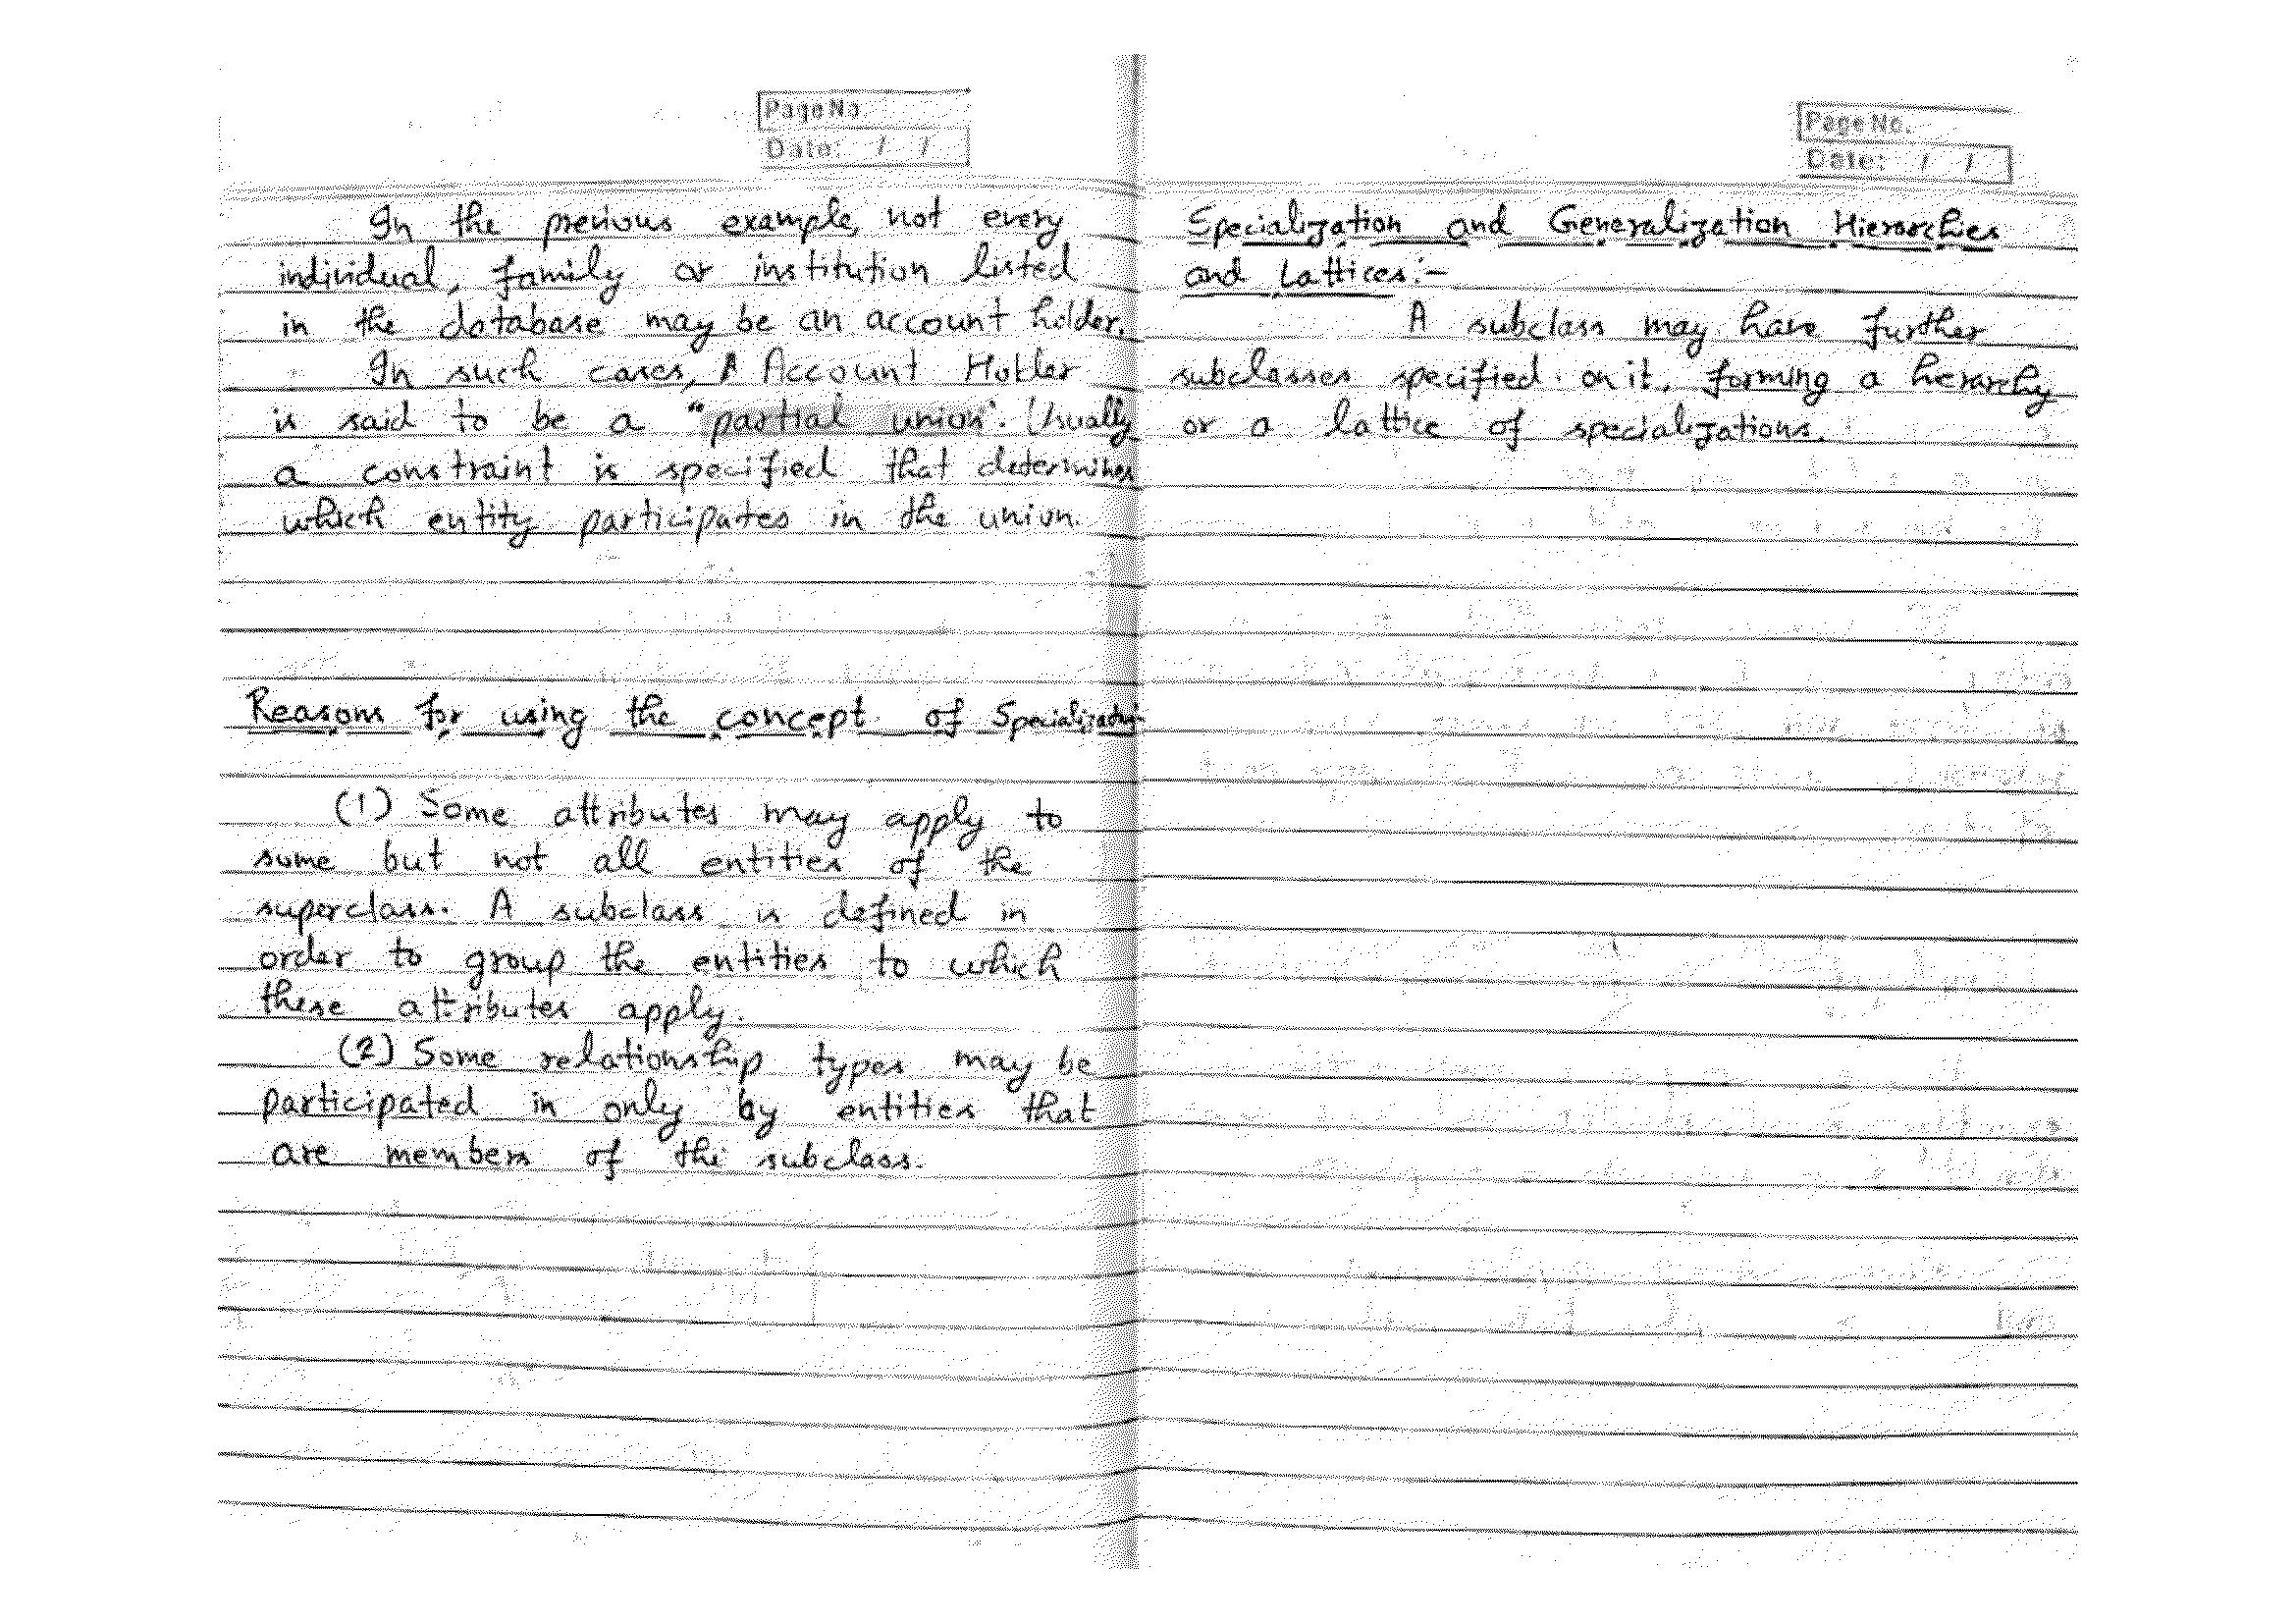 Page No.
Date: / /
In the previous example, not every
individual, family or institution listed
in the database may be an account holder.
In such cases, A Account Holder
is said to be a "partial union". Usually
a constraint is specified that determines
which entity participates in the union.
Reasons for using the concept of Specialization
(1) Some attributes may apply to
some but not all entities of the
superclass. A subclass is defined in
order to group the entities to which
these attributes apply.
(2) Some relationship types may be
participated in only by entities that
are members of the subclass.
Page No.
Date: / /
Specialization and Generalization Hierarchies
and Lattices:-
A subclass may have further
subclasses specified on it, forming a hierarchy
or a lattice of specializations.